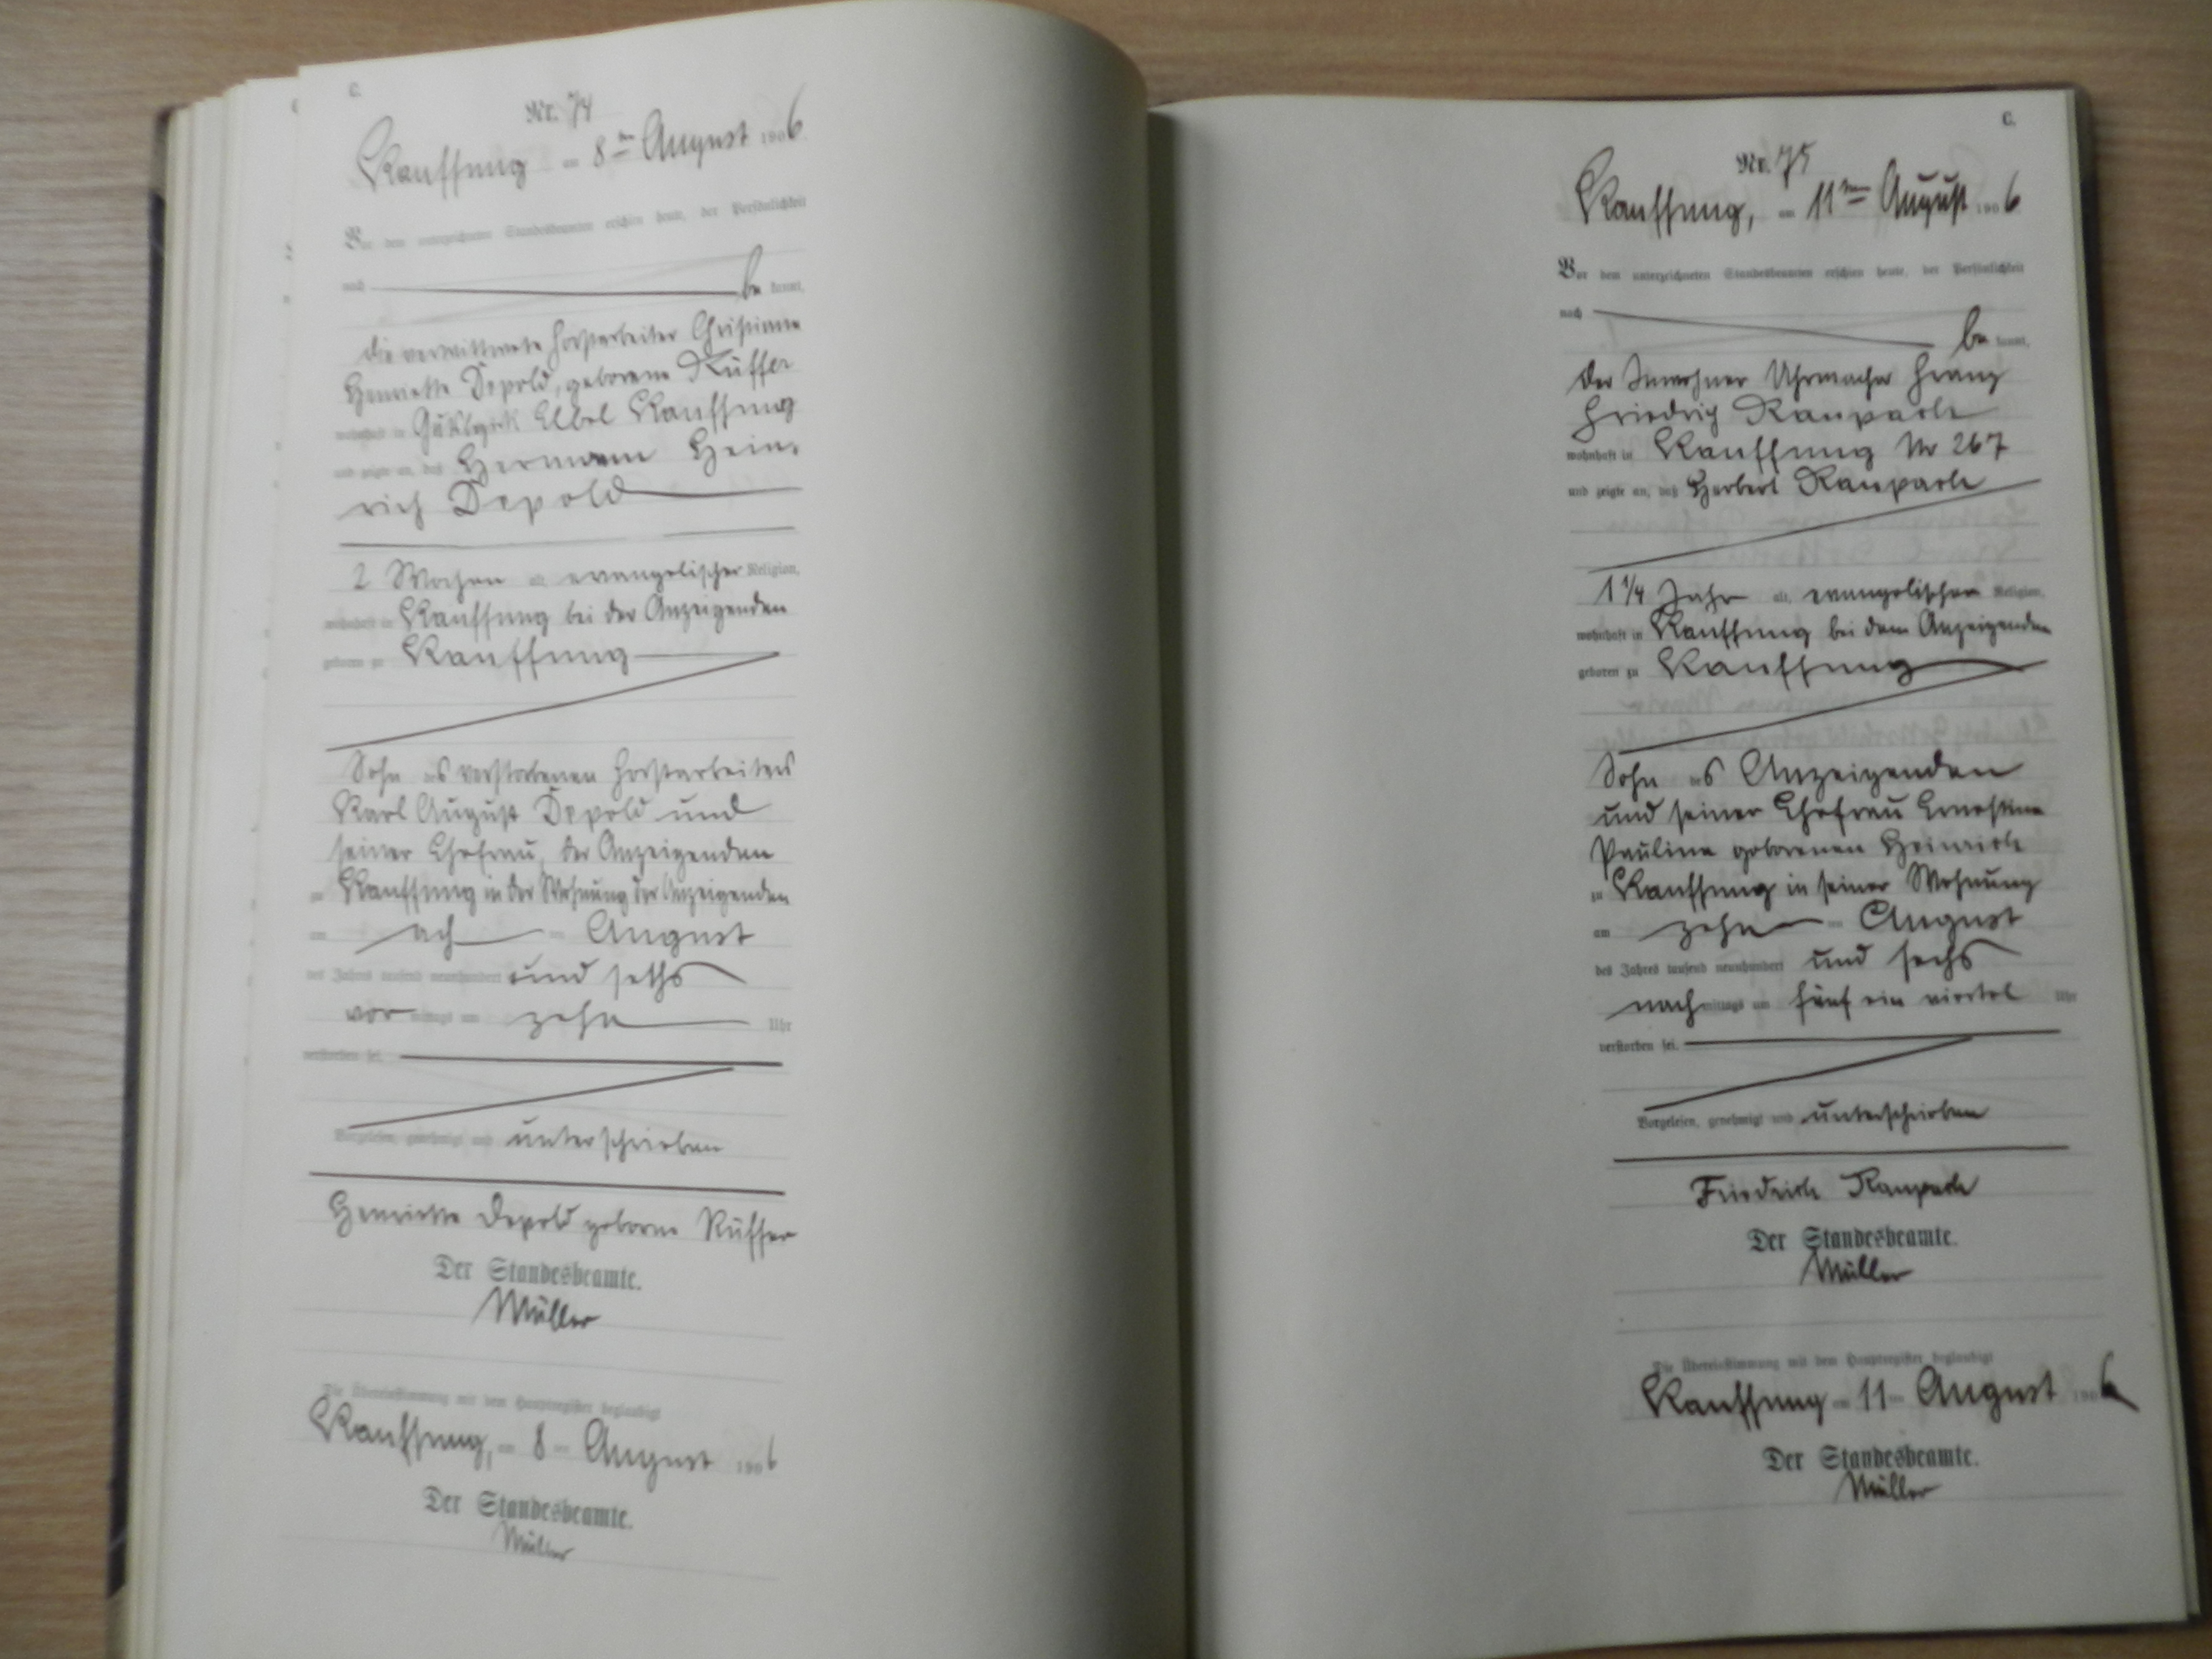 C.
Nr. 74
Kauffung am 8ten August 1906.
Vor dem unterzeichneten Standesbeamten erschien heute, der Persönlichkeit
nach be kannt,
die verwittwete Forstarbeiter Christiane
Henriette Depold, geborene Rüffer
wohnhaft in Gutsbezirk Elbel Kauffung
und zeigte an, daß Hermann Hein-
rich Depold
2 Wochen alt, evangelischer Religion,
wohnhaft in Kauffung bei der Anzeigenden
geboren zu Kauffung
Sohn des verstorbenen Forstarbeiters
Karl August Depold und
seiner Ehefrau, der Anzeigenden
zu Kauffung in der Wohnung der Anzeigenden
am ach ten August
des Jahres tausend neunhundert und sechs
vor mittags um zehn Uhr
verstorben sei.
Vorgelesen, genehmigt und unterschrieben
Henriette Depold geborne Rüffer
Der Standesbeamte.
Müller
Die Übereinstimmung mit dem Hauptregister beglaubigt
Kauffung, am 8 ten August 1906
Der Standesbeamte.
Müller
C.
Nr. 75
Kauffung, am 11ten August 1906
Vor dem unterzeichneten Standesbeamten erschien heute, der Persönlichkeit
nach be kannt,
der Inwohner Uhrmacher Franz
Friedrich Raupach
wohnhaft in Kauffung Nr 267
und zeigte an, daß Herbert Raupach
1 1/4 Jahr alt, evangelischer Religion,
wohnhaft in Kauffung bei dem Anzeigenden
geboren zu Kauffung
Sohn des Anzeigenden
und seiner Ehefrau Ernestine
Pauline geborenen Heinrich
zu Kauffung in seiner Wohnung
am zehn ten August
des Jahres tausend neunhundert und sechs
nach mittags um fünf ein viertel Uhr
verstorben sei.
Vorgelesen, genehmigt und unterschrieben
Friedrich Raupach
Der Standesbeamte.
Müller
Die Übereinstimmung mit dem Hauptregister beglaubigt
Kauffung am 11 ten August 1906
Der Standesbeamte.
Müller